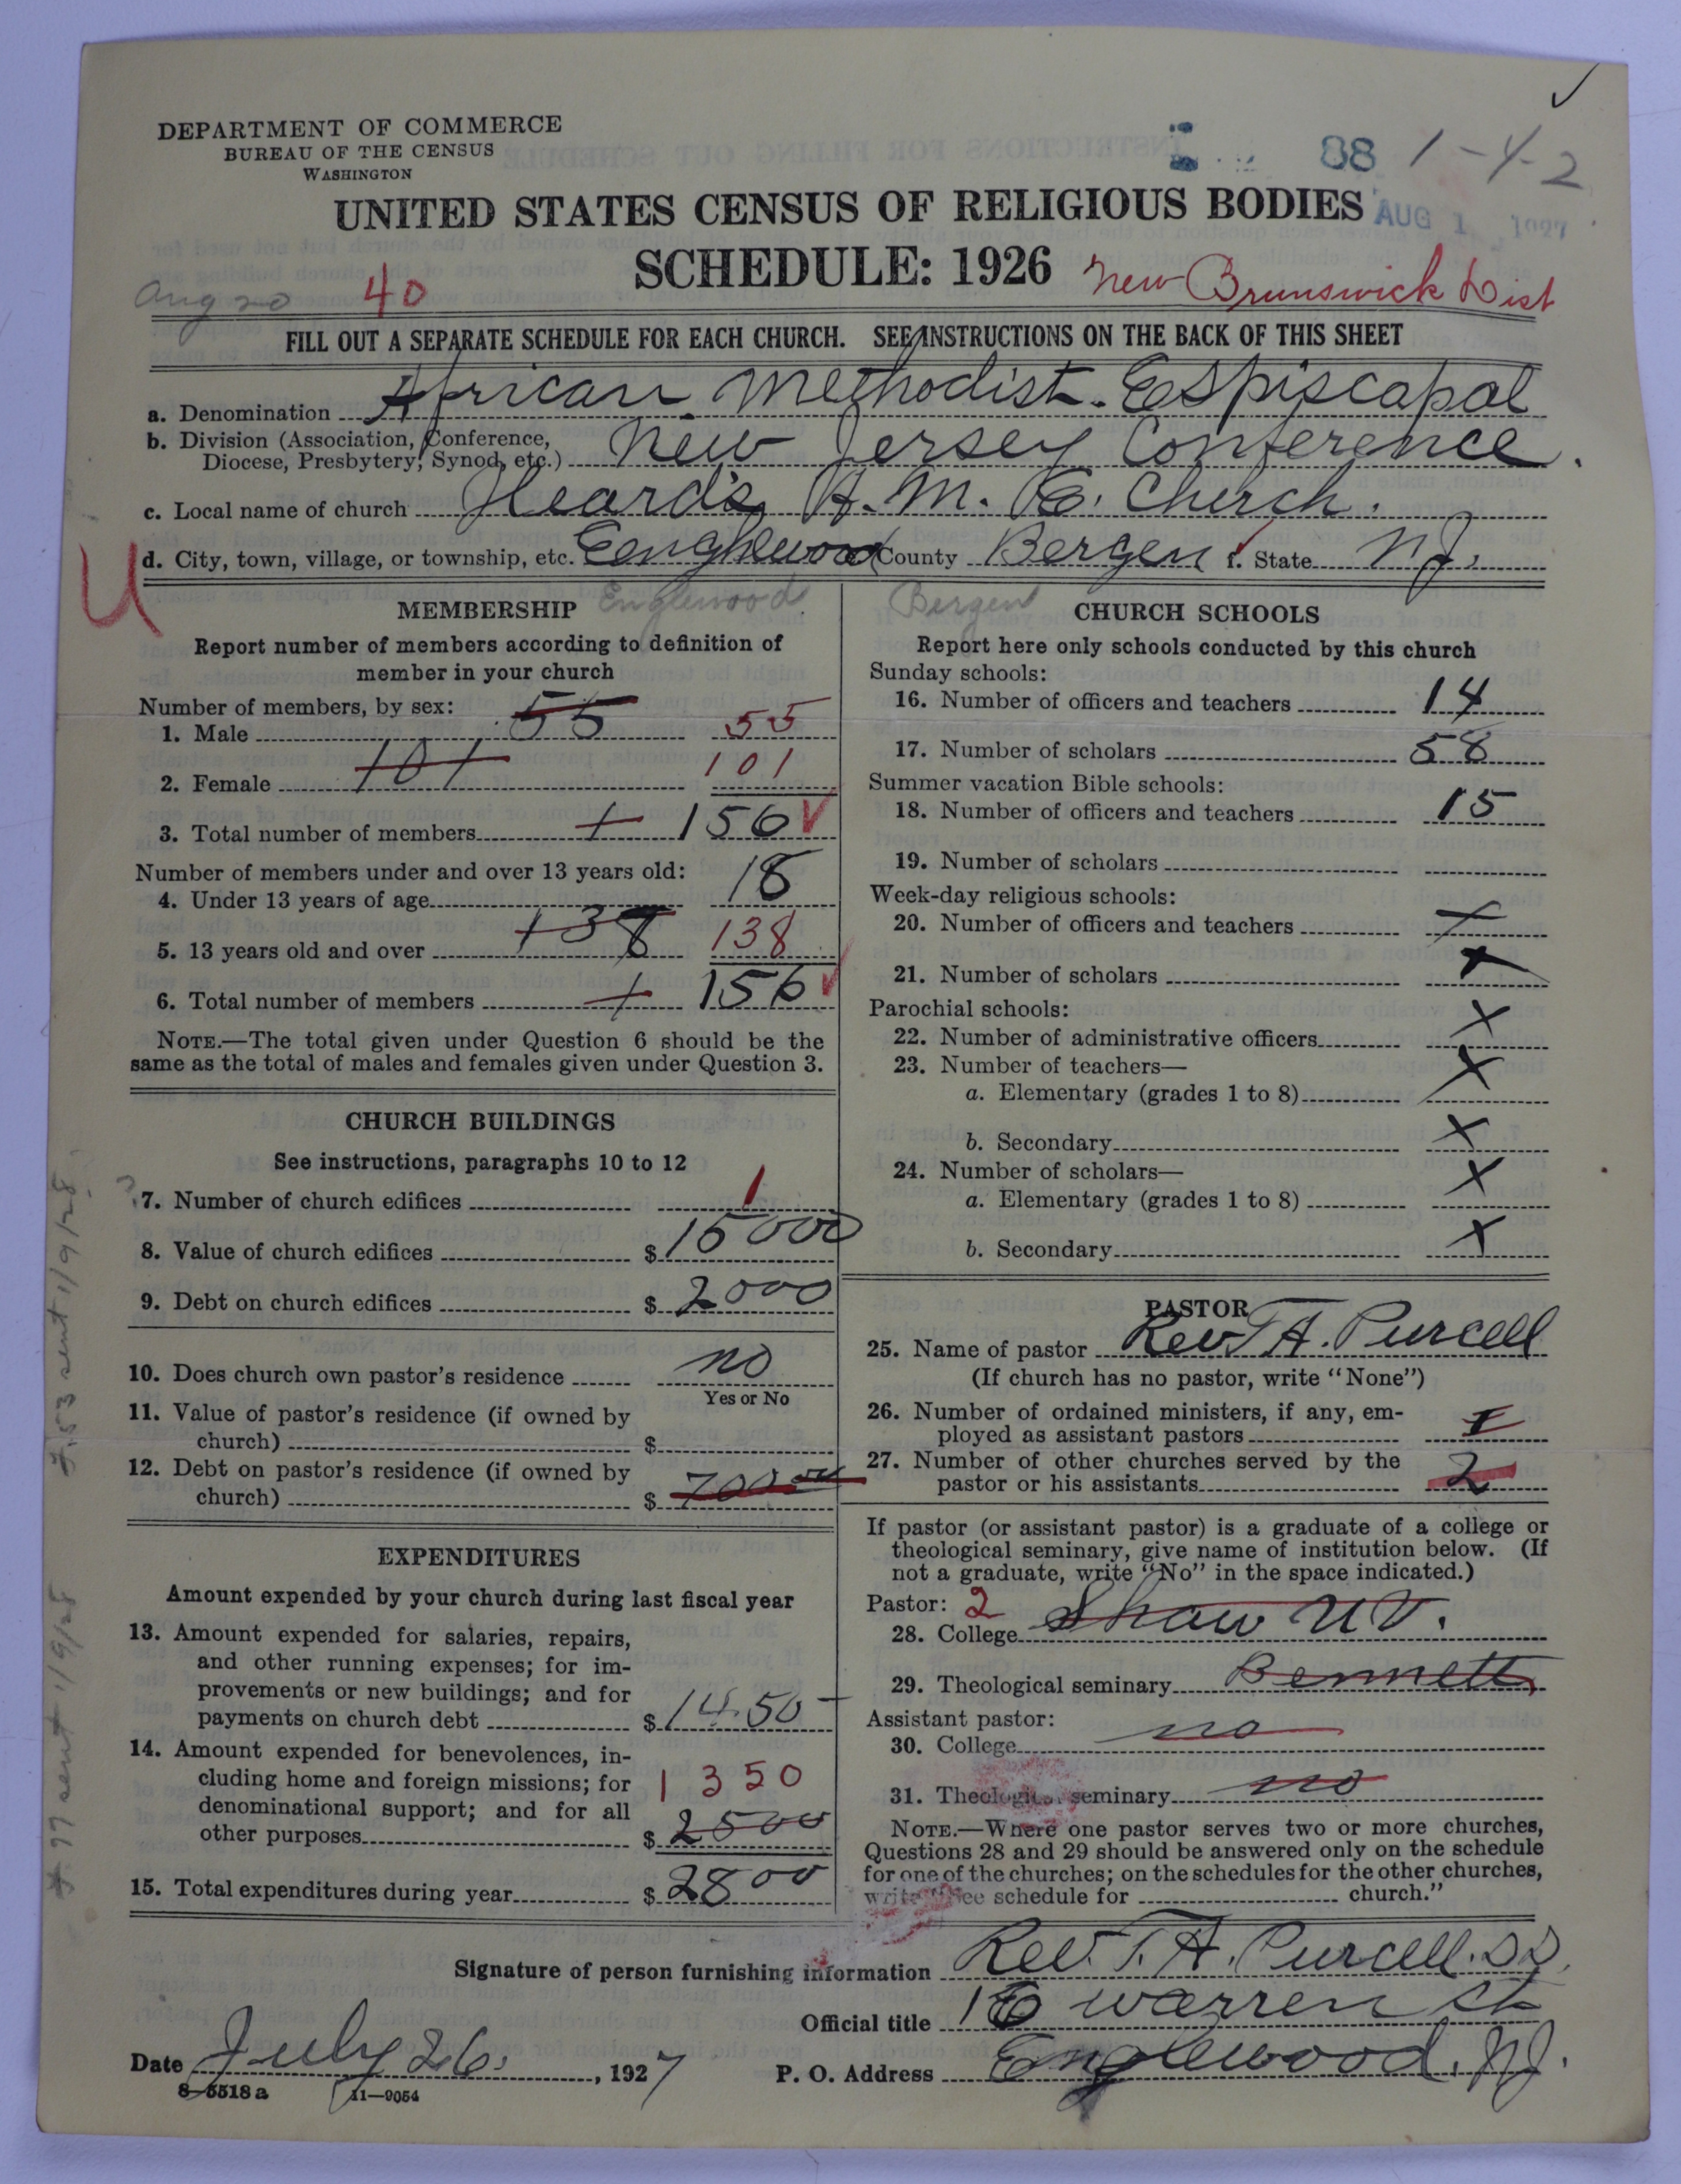 DEPARTMENT OF COMMERCE
BUREAU OF THE CENSUS
WASHINGTON
88 1-4-2
UNITED STATES CENSUS OF RELIGIOUS BODIES
AUG 1 1927
SCHEDULE: 1926
New Brunswick Dist
Aug 20 40
FILL OUT A SEPARATE SCHEDULE FOR EACH CHURCH. SEE INSTRUCTIONS ON THE BACK OF THIS SHEET
a. Denomination African Methodist Espiscapal
b. Division (Association, Conference,
Diocese, Presbytery, Synod, etc.) New Jersey Conference.
c. Local name of church Heard's A. M. E. Cherch.
d. City, town, village, or township, etc. Eenglewood County Bergen f. State N.J.
U
Englewood Bergen
MEMBERSHIP
Report number of members according to definition of
member in your church
Number of members, by sex:
1. Male 55 55
2. Female 101 101
3. Total number of members + 156
Number of members under and over 13 years old:
4. Under 13 years of age 18
5. 13 years old and over 138 138
6. Total number of members + 156
NOTE.—The total given under Question 6 should be the
same as the total of males and females given under Question 3.
CHURCH BUILDINGS
See instructions, paragraphs 10 to 12
7. Number of church edifices 1
8. Value of church edifices $ 15000
9. Debt on church edifices $ 2000
10. Does church own pastor's residence no
Yes or No
11. Value of pastor's residence (if owned by
church) $
12. Debt on pastor's residence (if owned by
church) $ 700.00
EXPENDITURES
Amount expended by your church during last fiscal year
13. Amount expended for salaries, repairs,
and other running expenses; for im-
provements or new buildings; and for
payments on church debt $ 1450-
14. Amount expended for benevolences, in-
cluding home and foreign missions; for 1350
denominational support; and for all
other purposes $ 2500
15. Total expenditures during year $ 2800
CHURCH SCHOOLS
Report here only schools conducted by this church
Sunday schools:
16. Number of officers and teachers 14
17. Number of scholars 58
Summer vacation Bible schools:
18. Number of officers and teachers 15
19. Number of scholars
Week-day religious schools:
20. Number of officers and teachers x
21. Number of scholars x
Parochial schools:
22. Number of administrative officers x
23. Number of teachers— x
a. Elementary (grades 1 to 8)
b. Secondary x
24. Number of scholars— x
a. Elementary (grades 1 to 8)
b. Secondary x
PASTOR
25. Name of pastor Rev. T A. Purcell
(If church has no pastor, write "None")
26. Number of ordained ministers, if any, em-
ployed as assistant pastors I
27. Number of other churches served by the
pastor or his assistants 2
If pastor (or assistant pastor) is a graduate of a college or
theological seminary, give name of institution below. (If
not a graduate, write "No" in the space indicated.)
Pastor: 2
28. College Shaw UV.
29. Theological seminary Bennett
Assistant pastor:
30. College no
31. Theological seminary no
NOTE.—Where one pastor serves two or more churches,
Questions 28 and 29 should be answered only on the schedule
for one of the churches; on the schedules for the other churches,
write "See schedule for church."
Signature of person furnishing information Rev. T. A. Purcell. DD.
Official title 16 warren St
Date July 26, 1927 P. O. Address Englewood, N.J.
8-5518 a 11—9054
sent 1/9/28
sent 1/9/28